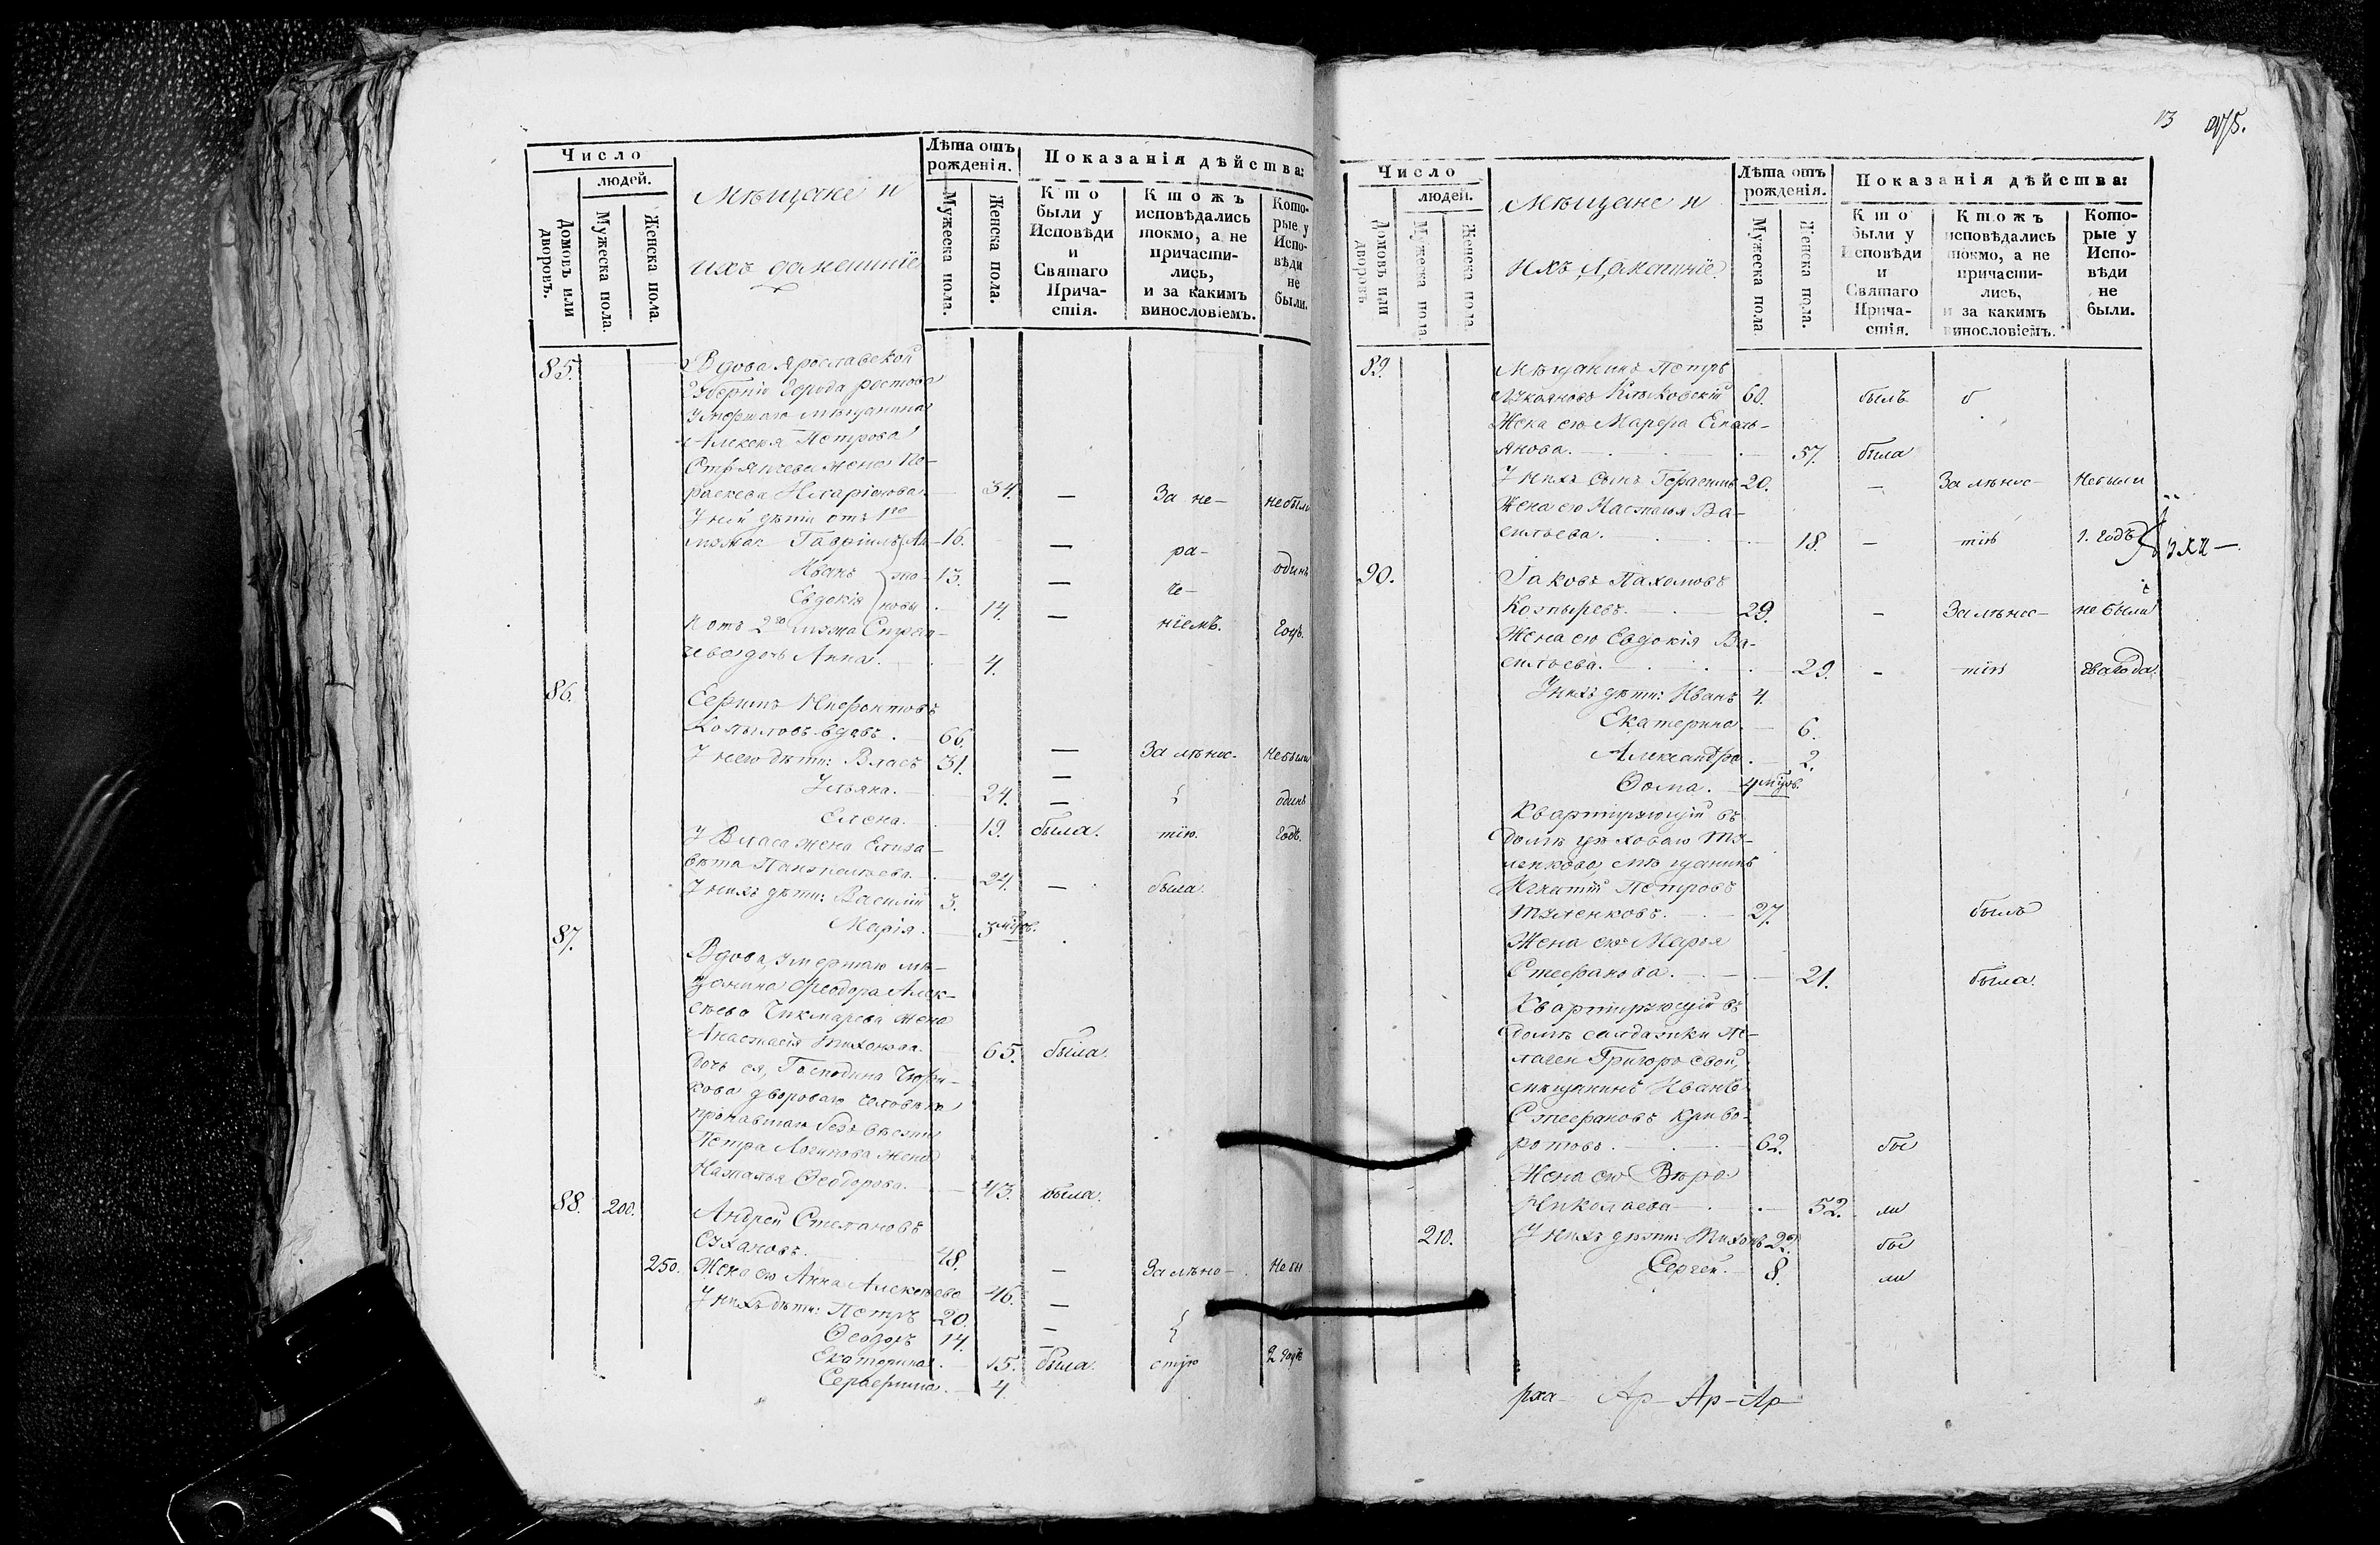 13 275.
Число
людей.
Домовъ или дворовъ.
Мужеска пола.
Женска пола.
Мѣщане и
ихъ домашніе
Лѣта отъ рожденія.
Мужеска пола.
Женска пола.
Показанія дѣйства:
Кто были у Исповѣди и Святаго Прича-стія.
Ктожъ исповѣдались токмо, а не причасти-лись, и за какимъ винословіемъ.
Кото-рые у Испо-вѣди не были.
85. Вдова Ярославской
Губерніи города Ростова
умершаго мѣщанина
Алексея Петрова
жена Па-
раскева Иларіонова. 34. — За не- небыли
У ней дѣти отъ 1го
мужа: Гавріилъ 16. — ра-
Иванъ 13. — че- одинъ
Евдокія 14. — ніемъ. годъ.
И отъ 2го мужа
дочь Анна. 4.
86.
Копыловъ вдовъ. 66. — За лѣнос- Небыли
У него дѣти: Власъ 31. —
Ульяна. 24. — одинъ
Елена. 19. была. тію. годъ.
У Власа жена Елиза-
вета 24. — была.
У нихъ дѣти: Василій 3.
Марія. 3 мцов.
87. Вдова, умершаго мѣ-
щанина Феодора Алек-
сѣева Чикмарева жена
Анастасія Тихонова. 65. была.
Дочь ея, Господина
двороваго человѣка
пропавшаго безъ вѣсти
Петра Логинова жена
Наталья Феодорова. 43. была.
88. 200. Андрей Степановъ
Сухановъ. 48. — За лѣно- Небы
250. Жена ею Анна Алексѣева 46. —
У нихъ дѣти: Петръ 20. —
Феодоръ 14. —
Екатерина. 15. была. стію 2 годъ
Серафима. 4.
Число
людей.
Домовъ или дворовъ.
Мужеска пола
Женска пола.
Мѣщане и
ихъ домашніе.
Лѣта отъ рожденія.
Мужеска пола
Женска пола.
Показанія дѣйства:
Кто были у Исповѣди и Святаго Прича-стія.
Ктожъ исповѣдались токмо, а не причасти-лись, и за какимъ винословіемъ.
Кото-рые у Испо-вѣди не были.
89. Мѣщанинъ Петръ
60. былъ
Жена ею Марфа Емель-
янова. 57. была
У нихъ сынъ Герасимъ 20. — За лѣнос- Небыли
Жена ею Настасья Ва-
сильева. 18. — тію 1. годъ
90. Іаковъ Пахомовъ
Козыревъ. 29. — За лѣнос- не были
Жена ею Евдокія Ва-
сильева. 29. — тію два года.
У нихъ дѣти: Иванъ 4.
Екатерина. 6.
Александра. 2.
Фома. 4 мцов.
Квартирующій въ
домѣ цѣховаго Ту-
ленкова, мѣщанинъ
Игнатій Петровъ
Туленковъ. 27. былъ
Жена ею Марья
Стефанова. 21. была.
Квартирующій въ
домѣ салдатки Пе-
лагеи Григорьевой,
мѣщанинъ Иванъ
Стефановъ Криво-
ротовъ. 62. бы
Жена ею Вѣра
Николаева 52. ли
210. У нихъ дѣти: Тихонъ 22. бы
Сергей. 8. ли
рха Ар-Ар-Ар